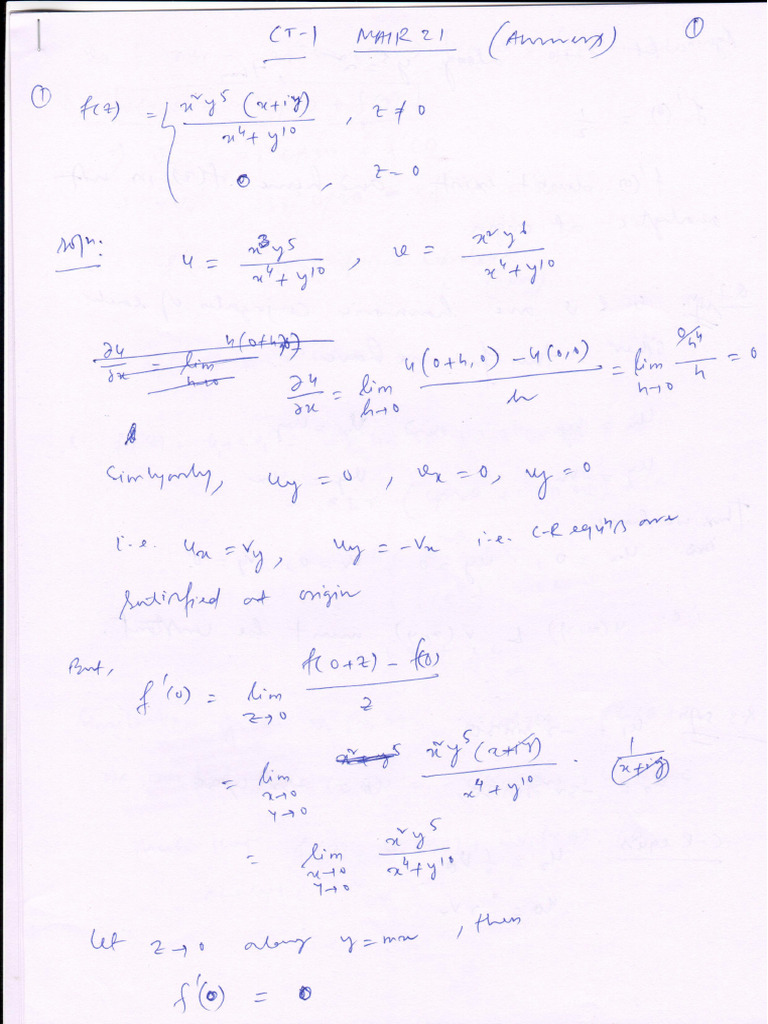 CT-1 MAIR 21 (Answers) ①
① f(z) = { x²y⁵ (x+iy) / x⁴+y¹⁰ , z ≠ 0
0 , z=0
Soln: u = x³y⁵ / x⁴+y¹⁰ , v = x²y⁶ / x⁴+y¹⁰
∂u/∂x = lim h→0 u(0+h,0) − u(0,0) / h = lim h→0 0/h⁴ / h = 0
Similarly, uy = 0 , vx = 0, vy = 0
i.e. ux = vy, uy = −vx i.e. C-R equⁿs are
satisfied at origin
But,
f'(0) = lim z→0 f(0+z) − f(0) / z
= lim x→0 y→0 x²y⁵ (x+iy) / x⁴+y¹⁰ · 1 / (x+iy)
= lim x→0 y→0 x²y⁵ / x⁴+y¹⁰
let z→0 along y=mx , then
f'(0) = 0